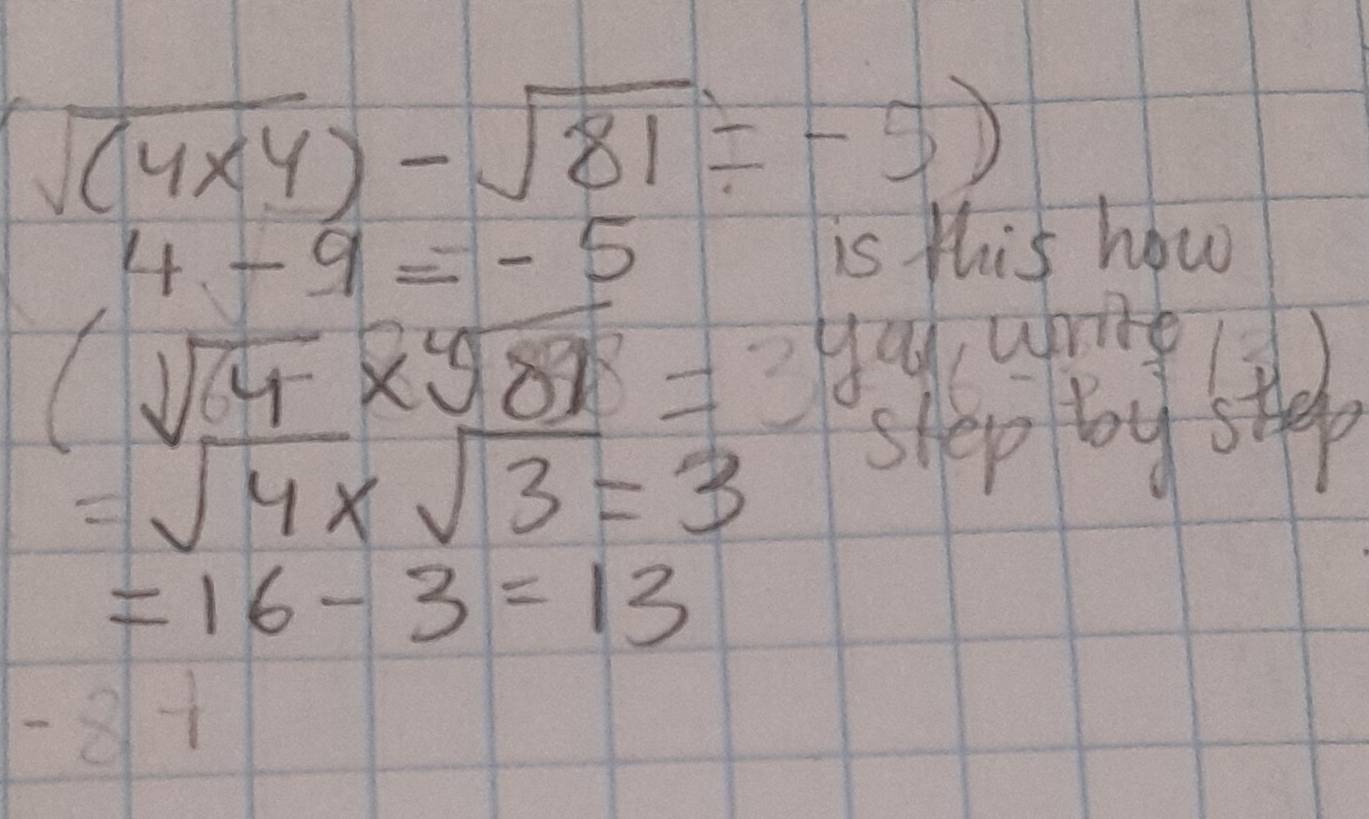 √(4×4) - √81 = -5)
4 - 9 = - 5
is this how
(√64 × ∜81 =
you write
step by step
= √4 × √3 = 3
= 16 - 3 = 13
- 8 +